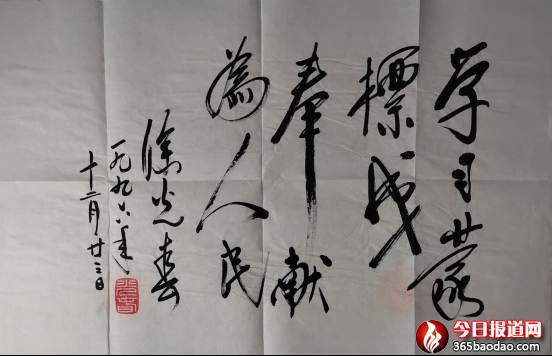 学习蒙
標成
奉献
為人民
徐光春
一九九六年
十二月廿三日
今日报道网
365baodao.com